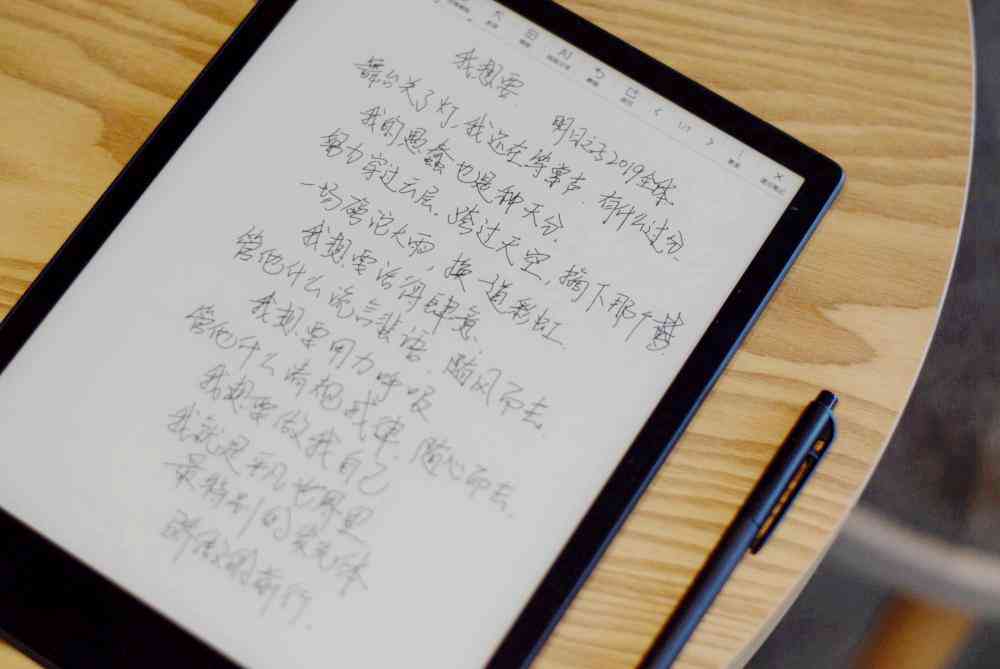 AI
1/1
我想要
明日之子2019全体
舞台关了灯,我还在等掌声.有什么过分.
我的愚蠢也是种天分.
努力穿过云层.跨过天空,摘下那个梦.
一场滂沱大雨,换一道彩虹.
我想要活得肆意.
管他什么流言蜚语.随风而去.
我想要用力呼吸
管他什么清规戒律.随心而去.
我想要做我自己
我就是平凡世界里
最特别的发光体